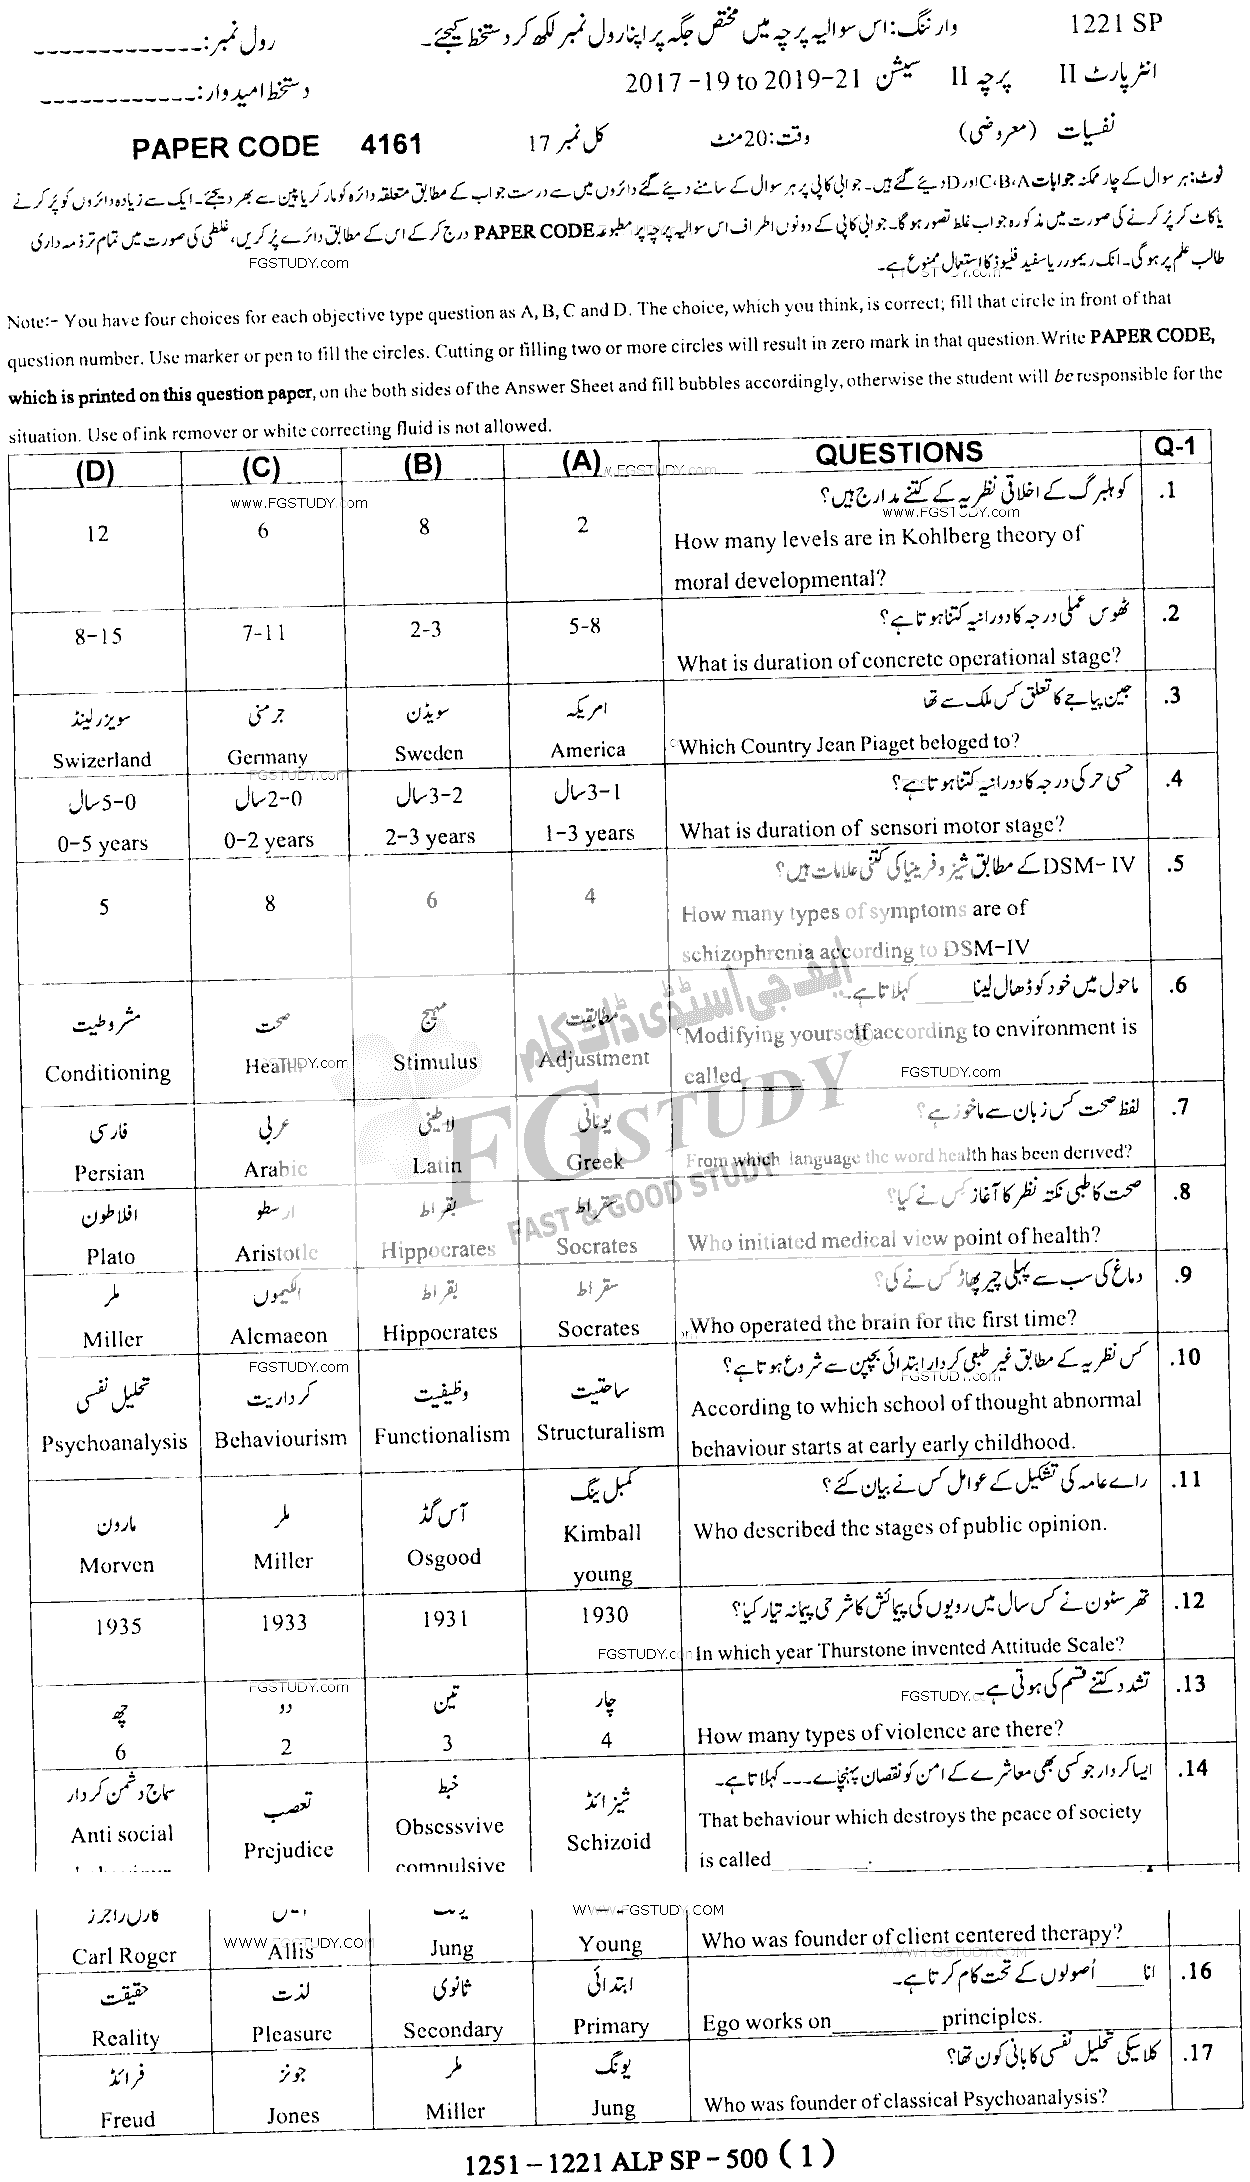 1221 SP
وارننگ: اس سوالیہ پرچہ میں مختص جگہ پر اپنا رول نمبر لکھ کر دستخط کیجئے۔
رول نمبر: _____________
انٹر پارٹ II پرچہ II سیشن 2017 -19 to 2019-21
دستخط امیدوار: ____________
نفسیات (معروضی)
وقت: 20 منٹ
کل نمبر 17
PAPER CODE 4161
نوٹ: ہر سوال کے چار ممکنہ جوابات C،B،A اور D دیئے گئے ہیں۔ جوابی کاپی پر ہر سوال کے سامنے دیئے گئے دائروں میں سے درست جواب کے مطابق متعلقہ دائرہ کو مارکر یا پین سے بھر دیجئے۔ ایک سے زیادہ دائروں کو پُر کرنے
یا کاٹ کر پُر کرنے کی صورت میں مذکورہ جواب غلط تصور ہو گا۔ جوابی کاپی کے دونوں اطراف اس سوالیہ پرچہ پر مطبوعہ PAPER CODE درج کر کے اس کے مطابق دائرے پُر کریں، غلطی کی صورت میں تمام تر ذمہ داری
طالب علم پر ہو گی۔ انک ریموور یا سفید فلیوڈ کا استعمال ممنوع ہے۔
FGSTUDY.com
Note:- You have four choices for each objective type question as A, B, C and D. The choice, which you think, is correct; fill that circle in front of that
question number. Use marker or pen to fill the circles. Cutting or filling two or more circles will result in zero mark in that question. Write PAPER CODE,
which is printed on this question paper, on the both sides of the Answer Sheet and fill bubbles accordingly, otherwise the student will be responsible for the
situation. Use of ink remover or white correcting fluid is not allowed.
(D) (C) (B) (A) QUESTIONS Q-1
کوہلبرگ کے اخلاقی نظریہ کے کتنے مدارج ہیں؟ .1
www.FGSTUDY.com
12 6 8 2
How many levels are in Kohlberg theory of
moral developmental?
ٹھوس عملی درجہ کا دورانیہ کتنا ہوتا ہے؟ .2
8-15 7-11 2-3 5-8
What is duration of concrete operational stage?
جین پیاجے کا تعلق کس ملک سے تھا .3
سویزرلینڈ جرمنی سویڈن امریکہ
Swizerland Germany Sweden America
Which Country Jean Piaget beloged to?
FGSTUDY.com
حسی حرکی درجہ کا دورانیہ کتنا ہوتا ہے؟ .4
0-5 سال 0-2 سال 2-3 سال 1-3 سال
0-5 years 0-2 years 2-3 years 1-3 years
What is duration of sensori motor stage?
DSM- IV کے مطابق شیزوفرینیا کی کتنی علامات ہیں؟ .5
5 8 6 4
How many types of symptoms are of
schizophrenia according to DSM-IV
ماحول میں خود کو ڈھال لینا _____ کہلاتا ہے۔ .6
مشروطیت صحت مہیج مطابقت
Conditioning Health Stimulus Adjustment
Modifying yourself according to environment is
called
FGSTUDY.com
لفظ صحت کس زبان سے ماخوذ ہے؟ .7
فارسی عربی لاطینی یونانی
Persian Arabic Latin Greek
From which language the word health has been derived?
صحت کا طبی نکتہ نظر کا آغاز کس نے کیا؟ .8
افلاطون ارسطو بقراط سقراط
Plato Aristotle Hippocrates Socrates
Who initiated medical view point of health?
دماغ کی سب سے پہلی چیر پھاڑ کس نے کی؟ .9
ملر الکیموں بقراط سقراط
Miller Alcmaeon Hippocrates Socrates
Who operated the brain for the first time?
FGSTUDY.com
کس نظریہ کے مطابق غیر طبعی کردار ابتدائی بچپن سے شروع ہوتا ہے؟ .10
FGSTUDY.com
تحلیل نفسی کرداریت وظیفیت ساختیت
Psychoanalysis Behaviourism Functionalism Structuralism
According to which school of thought abnormal
behaviour starts at early early childhood.
رائے عامہ کی تشکیل کے عوامل کس نے بیان کئے؟ .11
مارون ملر آس گڈ کمبل ینگ
Morven Miller Osgood Kimball
young
Who described the stages of public opinion.
تھرسٹون نے کس سال میں رویوں کی پیمائش کا شرحی پیمانہ تیار کیا؟ .12
1935 1933 1931 1930
FGSTUDY.com
In which year Thurstone invented Attitude Scale?
FGSTUDY.com
تشدد کتنے قسم کی ہوتی ہے۔ .13
چھ دو تین چار
6 2 3 4
How many types of violence are there?
ایسا کردار جو کسی بھی معاشرے کے امن کو نقصان پہنچاے --- کہلاتا ہے۔ .14
سماج دشمن کردار تعصب خبط شیزائڈ
Anti social Prejudice Obsessvive Schizoid
compulsive
That behaviour which destroys the peace of society
is called ________.
WWW.FGSTUDY.COM
کارل راجرز
Carl Roger Allis Jung Young
Who was founder of client centered therapy?
انا ____ اُصولوں کے تحت کام کرتا ہے۔ .16
حقیقت لذت ثانوی ابتدائی
Reality Pleasure Secondary Primary
Ego works on________ principles.
کلاسیکی تحلیل نفسی کا بانی کون تھا؟ .17
فرائڈ جونز ملر یونگ
Freud Jones Miller Jung
Who was founder of classical Psychoanalysis?
ایف جی اسٹڈی ڈاٹ کام
FG STUDY
FAST & GOOD STUDY
1251 - 1221 ALP SP - 500 ( 1 )